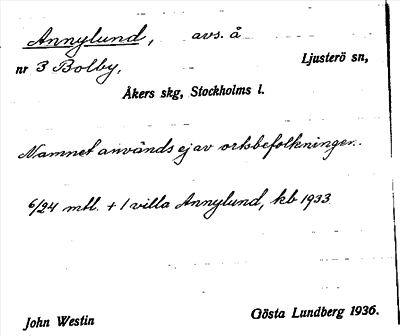 Annylund, avs. å
nr 3 Bolby, Ljusterö sn,
Åkers skg, Stockholms l.
Namnet används ej av ortsbefolkningen.
6/24 mtl. + 1 villa Annylund, kb 1933
John Westin Gösta Lundberg 1936.